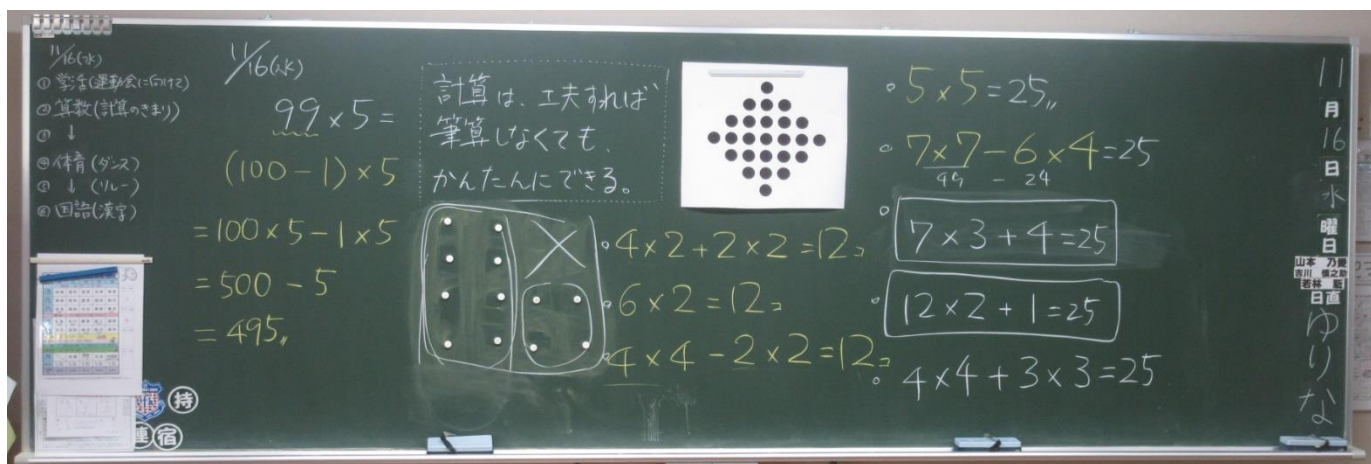 11/16(水)
① 学活(運動会に向けて)
② 算数(計算のきまり)
③ ↓
④ 体育(ダンス)
⑤ ↓ (リレー)
⑥ 国語(漢字)
11/16(水)
99×5=
(100-1)×5
=100×5-1×5
=500-5
=495〃
計算は、工夫すれば
筆算しなくても、
かんたんにできる。
4×2+2×2=12コ
6×2=12コ
4×4-2×2=12コ
5×5=25〃
7×7-6×4=25
49 - 24
7×3+4=25
12×2+1=25
4×4+3×3=25
11
月
16
日
水
曜
日
山本 乃愛
吉川 慎之助
若林 駈
日直
ゆりな
持
連
宿